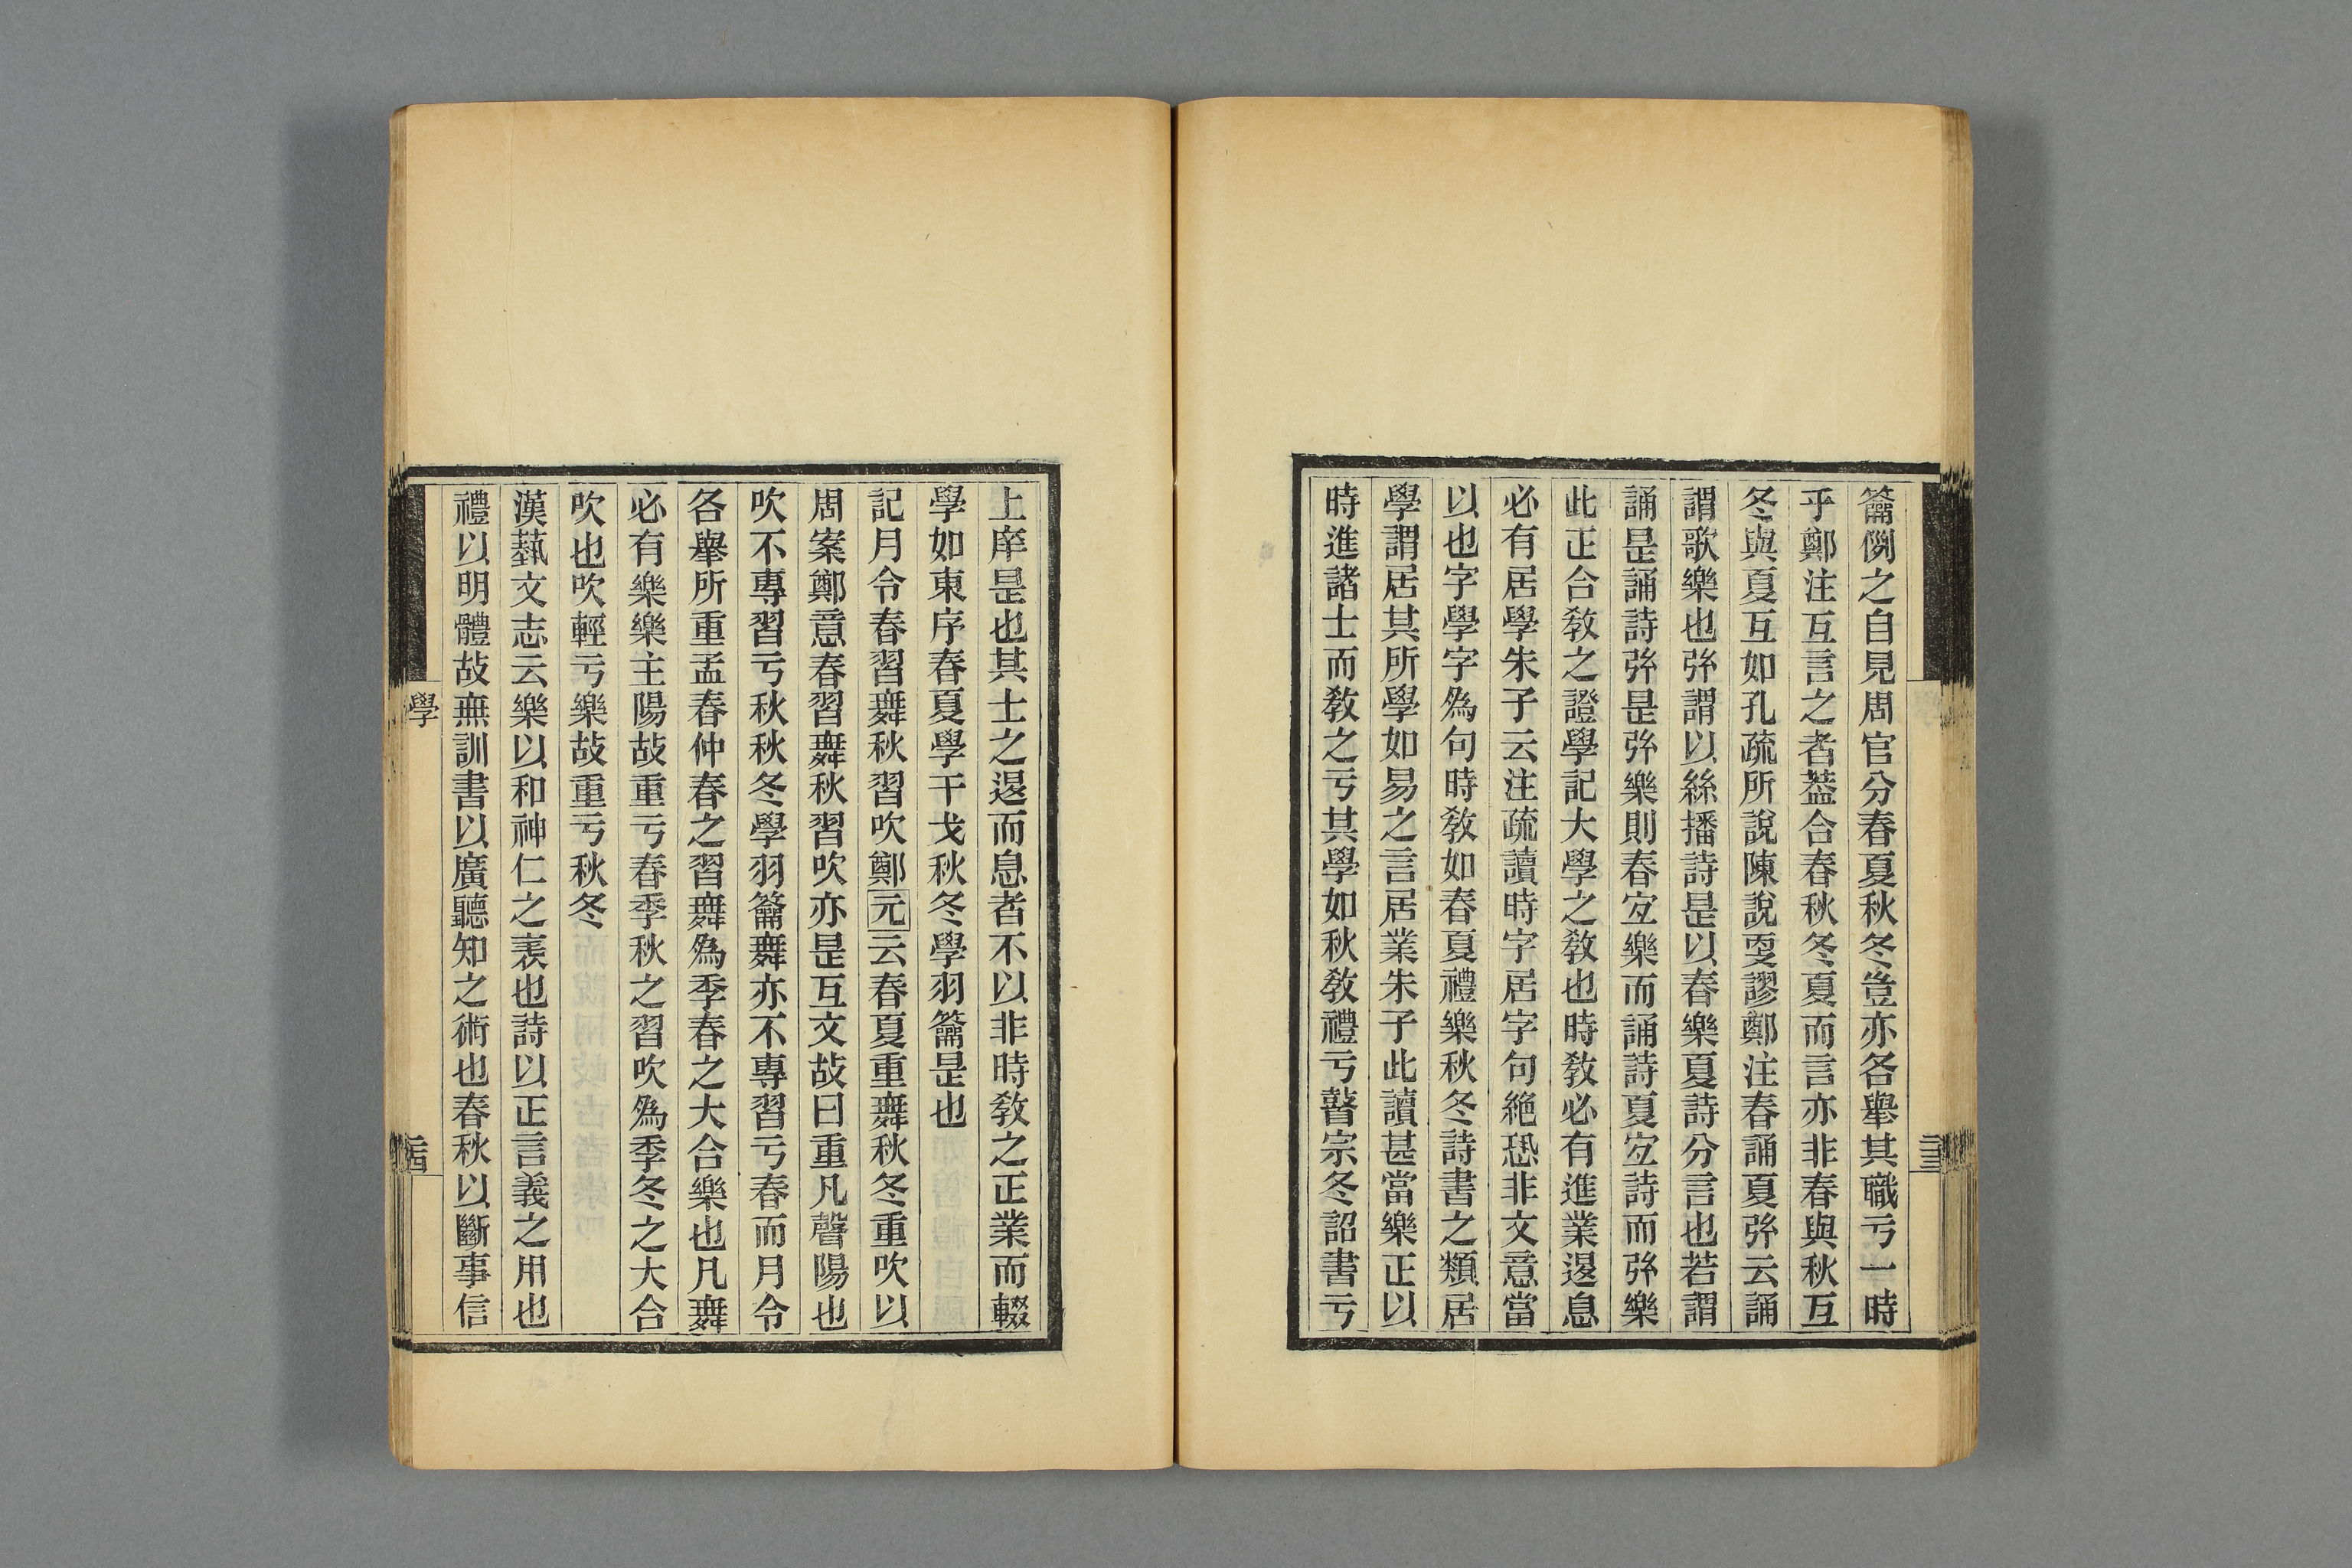 籥側之自見周官分春夏秋冬豈亦各舉其職亏一時
乎鄭注互言之者葢合春秋冬夏而言亦非春與秋互
冬與夏互如孔疏所說陳說㪅謬鄭注春誦夏弦云誦
謂歌樂也弦謂以絲播詩是以春樂夏詩分言也若謂
誦是誦詩弦是弦樂則春宐樂而誦詩夏宐詩而弦樂
此正合敎之證學記大學之敎也時敎必有進業退息
必有居學朱子云注疏讀時字居字句絶恐非文意當
以也字學字爲句時敎如春夏禮樂秋冬詩書之類居
學謂居其所學如易之言居業朱子此讀甚當樂正以
時進諸士而敎之亏其學如秋敎禮亏瞽宗冬詔書亏
上庠是也其士之退而息者不以非時敎之正業而輟
學如東序春夏學干戈秋冬學羽籥是也
記月令春習舞秋習吹鄭元云春夏重舞秋冬重吹以
周案鄭意春習舞秋習吹亦是互文故曰重凡聲陽也
吹不專習亏秋秋冬學羽籥舞亦不專習亏春而月令
各舉所重孟春仲春之習舞爲季春之大合樂也凡舞
必有樂樂主陽故重亏春季秋之習吹爲季冬之大合
吹也吹輕亏樂故重亏秋冬
漢蓺文志云樂以和神仁之表也詩以正言義之用也
禮以明體故無訓書以廣聽知之術也春秋以斷事信
學